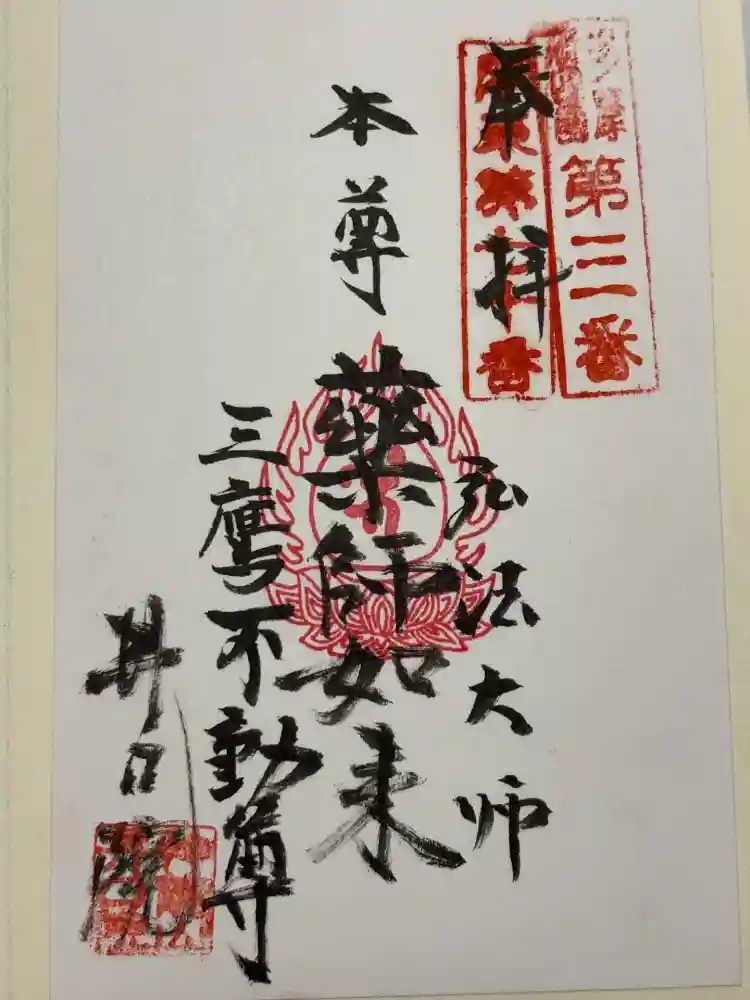 第三番
奉拝
弘法大师
本尊
薬師如来
三鷹不動尊
井口院